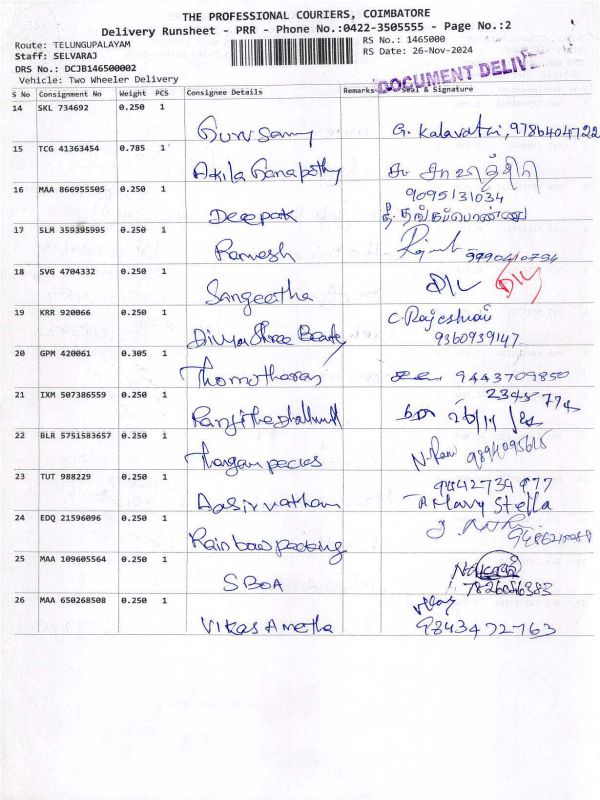 THE PROFESSIONAL COURIERS, COIMBATORE
Delivery Runsheet - PRR - Phone No.:0422-3505555 - Page No.:2
Route: TELUNGUPALAYAM
RS No.: 1465000
Staff: SELVARAJ
RS Date: 26-Nov-2024
DRS No.: DCJB146500002
Vehicle: Two Wheeler Delivery
DOCUMENT DELIV
S No Consignment No Weight PCS Consignee Details Remarks Seal & Signature
14 SKL 734692 0.250 1
Gurusamy G. Kalavathi, 9786404722
15 TCG 41363454 0.785 1
Akila Ganapathy
16 MAA 866955505 0.250 1 9095131034
Deepak
17 SLM 359395995 0.250 1
Ramesh 9990410794
18 SVG 4704332 0.250 1
Sangeetha DIV DIV
19 KRR 920066 0.250 1 C. Rajeshwari
Divya Shree Beauty 9360939147
20 GPM 420061 0.305 1
9443709850
21 IXM 507386559 0.250 1 2345774
26/11
22 BLR 5751583657 0.250 1
9894095615
23 TUT 988229 0.250 1 9442734977
Aasirvatham A Mary Stella
24 EDQ 21596096 0.250 1
Rainbow packing
25 MAA 109605564 0.250 1
SBOA 7826086383
26 MAA 650268508 0.250 1
Vikas Ametha 9843472763